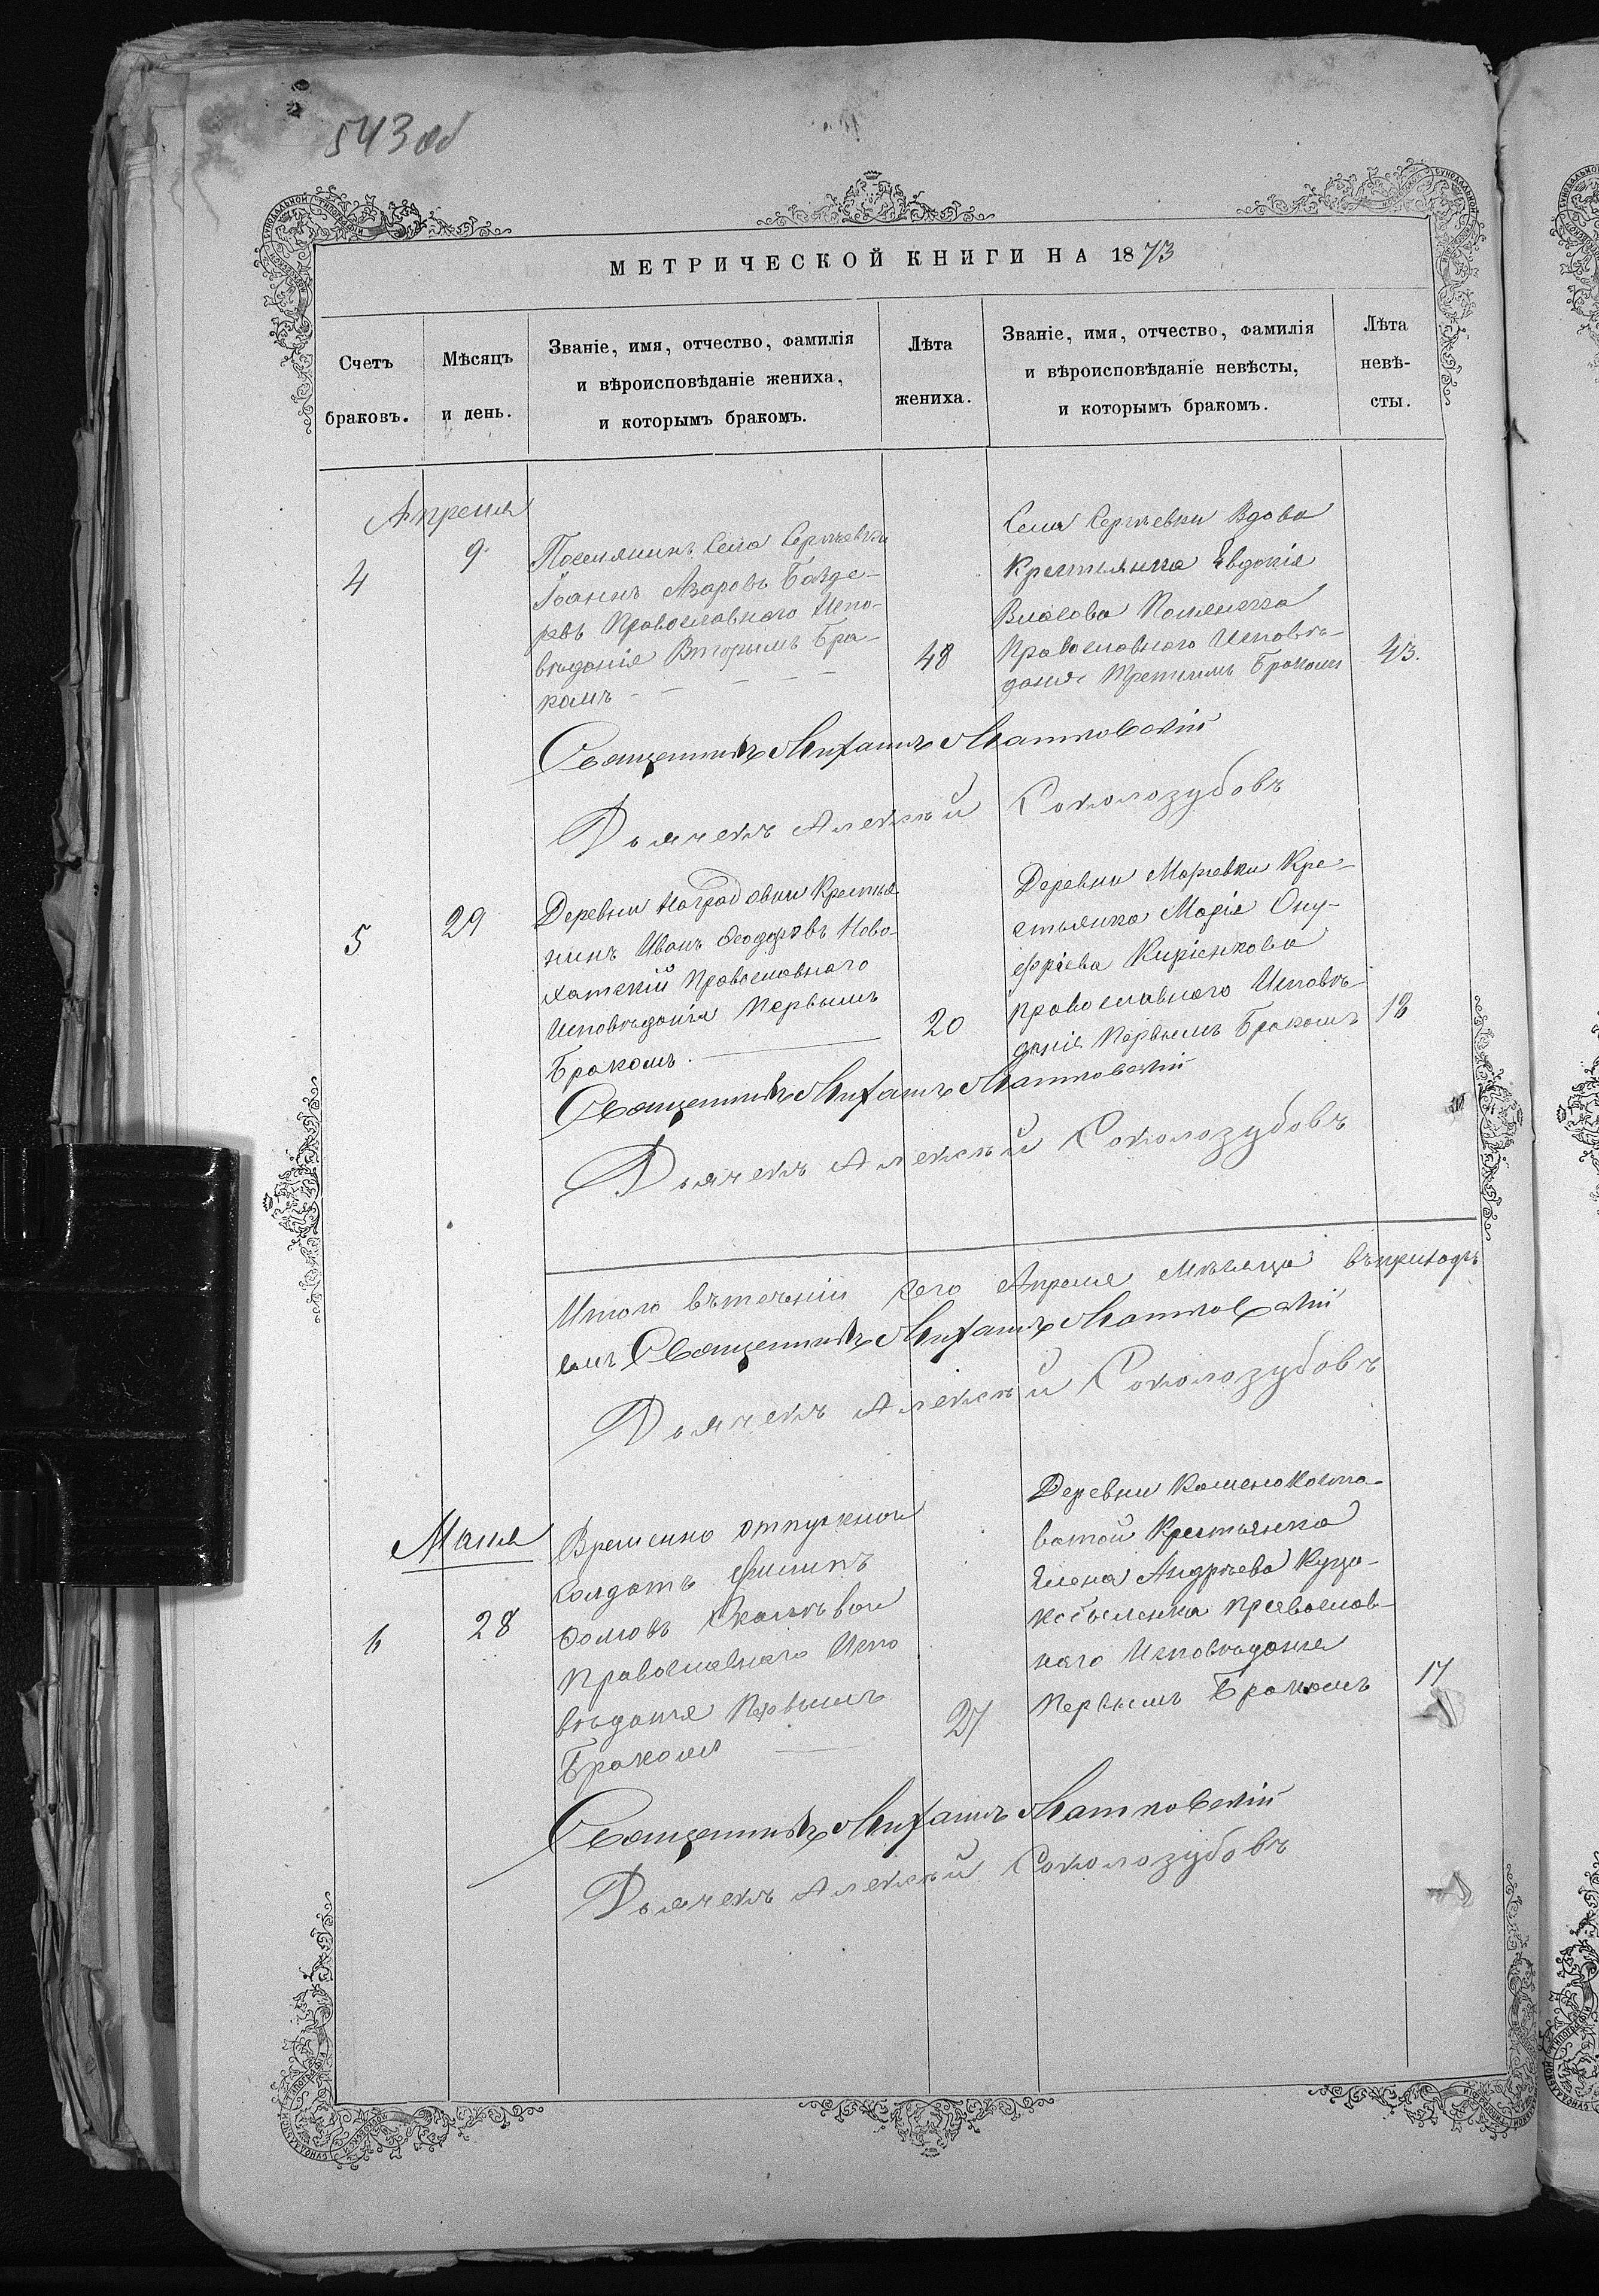 543 об
МЕТРИЧЕСКОЙ КНИГИ НА 1873
Счетъ браковъ.
Мѣсяцъ и день.
Званіе, имя, отчество, фамилія
и вѣроисповѣданіе жениха,
и которымъ бракомъ.
Лѣта жениха.
Званіе, имя, отчество, фамилія
и вѣроисповѣданіе невѣсты,
и которымъ бракомъ.
Лѣта невѣ-
сты.
Апреля
4
9
Поселянинъ Села Сергѣевки
Іоаннъ Азаровъ Базде-
ревъ Православнаго Испо-
вѣданія Вторымъ Бра-
комъ
48
Села Сергѣевки Вдова
Крестьянка Евдокія
Власова
Православнаго Исповѣ-
данія Третимъ Бракомъ
43.
Священникъ Михаилъ Матковскій
Дьячекъ Алексѣй Соколозубовъ
5
29
Деревни Наградовки Крестья-
нинъ Иванъ Ѳеодоровъ Ново-
хатскій Православнаго
Исповѣданія Первымъ
Бракомъ.
20
Деревни Марьевки Кре-
стьянка Марія Ону-
фріева Киріенкова
Православнаго Исповѣ-
данія Первымъ Бракомъ
18
Священникъ Михаилъ Матковскій
Дьячекъ Алексѣй Соколозубовъ
Итого вътеченіи сего Апреля Мѣсяца въприходѣ
Священникъ Михаилъ Матковскій
Дьячекъ Алексѣй Соколозубовъ
Маия
6
28
Временно отпускной
Солдатъ Филипъ
Православнаго Испо
вѣданія Первымъ
Бракомъ
27
Деревни Каменокоста-
ватой Крестьянка
Елена Андрѣева Куцо-
кобыленка Православ-
наго Исповѣданія
Первымъ Бракомъ
17
Священникъ Михаилъ Матковскій
Дьячекъ Алексѣй Соколозубовъ